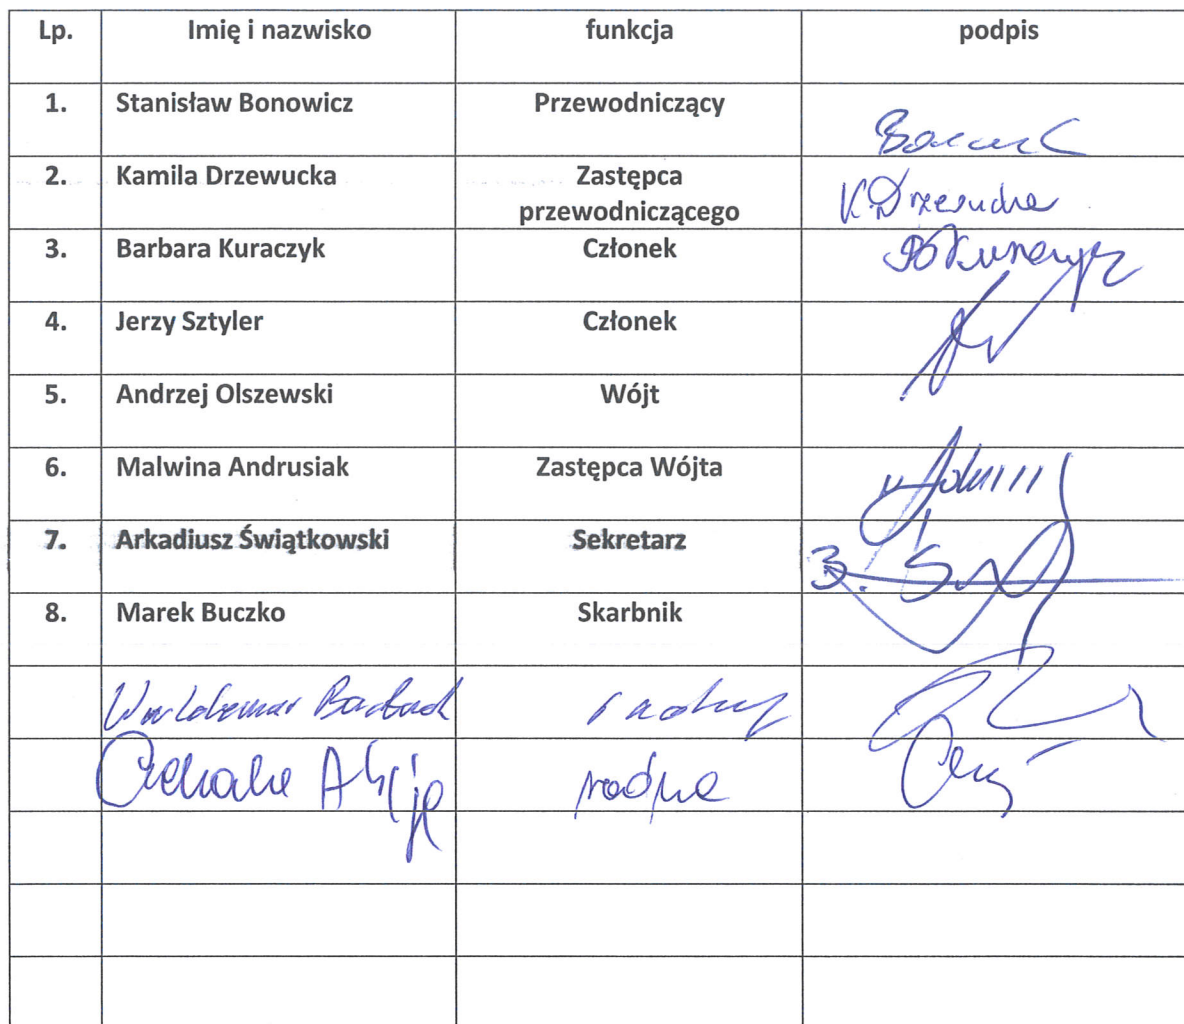 Lp. Imię i nazwisko funkcja podpis
1. Stanisław Bonowicz Przewodniczący
2. Kamila Drzewucka Zastępca
przewodniczącego K. Drzewucka
3. Barbara Kuraczyk Członek B Kuraczyk
4. Jerzy Sztyler Członek
5. Andrzej Olszewski Wójt
6. Malwina Andrusiak Zastępca Wójta
7. Arkadiusz Świątkowski Sekretarz
8. Marek Buczko Skarbnik
Waldemar radny
Alicja radna